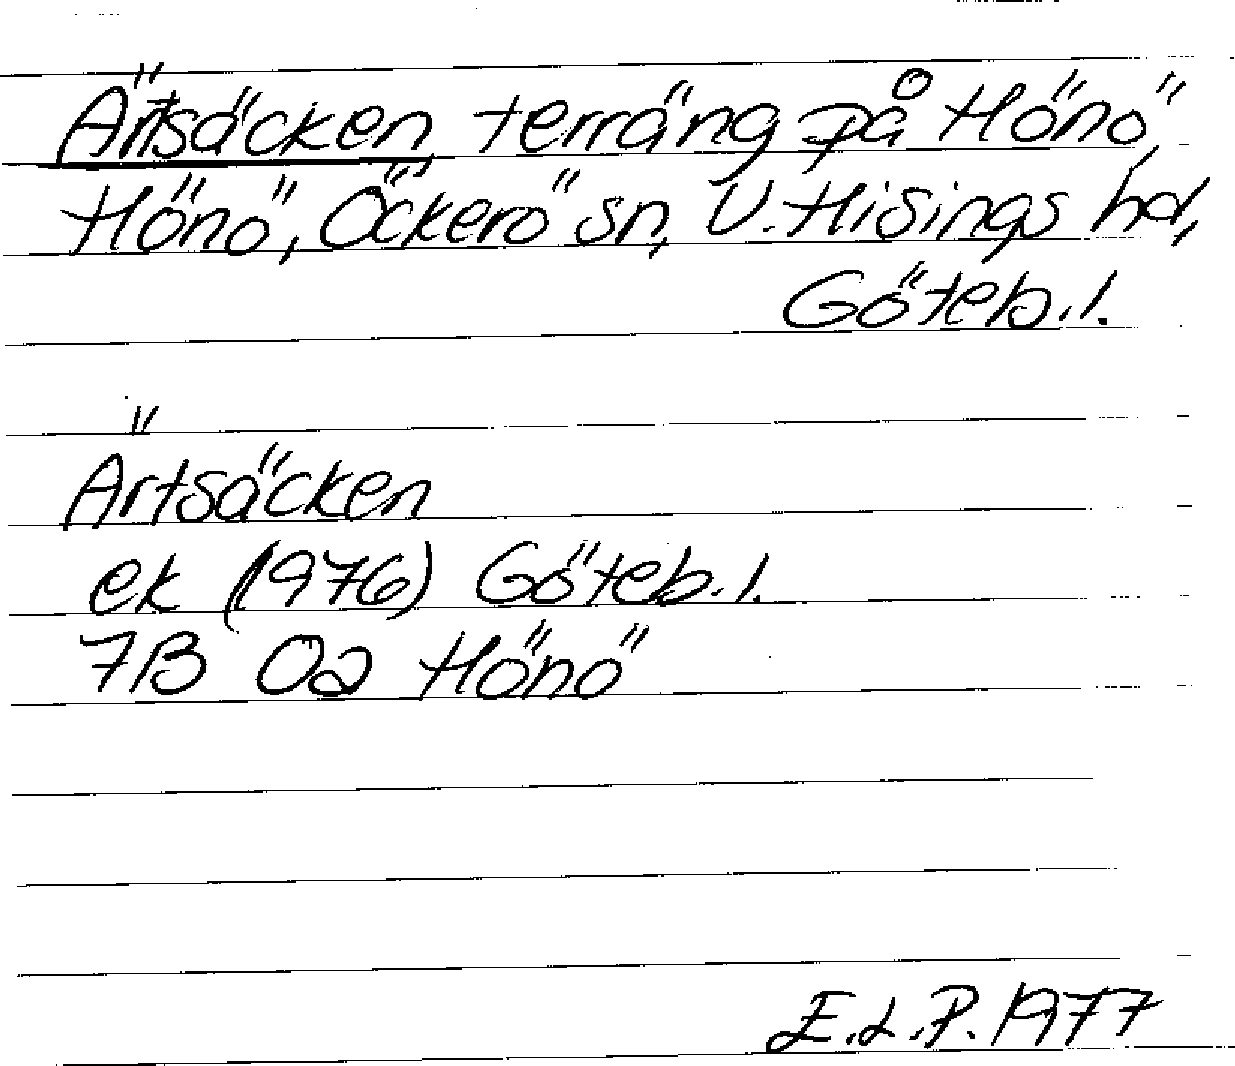 Ärtsäcken, terräng på Hönö,
Hönö, Öckerö sn, V. Hisings hd,
Göteb.l.
Ärtsäcken
ek (1976) Göteb.l.
7B 0a Hönö
E.L.P. 1977